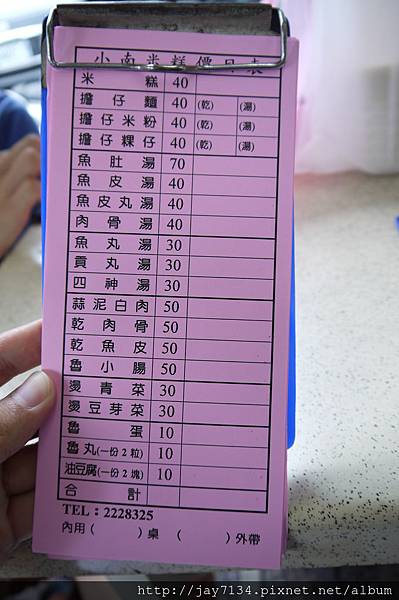 小南米糕價目表
米糕 40
擔仔麵 40 (乾) (湯)
擔仔米粉 40 (乾) (湯)
擔仔粿仔 40 (乾) (湯)
魚肚湯 70
魚皮湯 40
魚皮丸湯 40
肉骨湯 40
魚丸湯 30
貢丸湯 30
四神湯 30
蒜泥白肉 50
乾肉骨 50
乾魚皮 50
魯小腸 50
燙青菜 30
燙豆芽菜 30
魯蛋 10
魯丸(一份2粒) 10
油豆腐(一份2塊) 10
合計
TEL：2228325
內用（ ）桌（ ）外帶
http://jay7134.pixnet.net/album